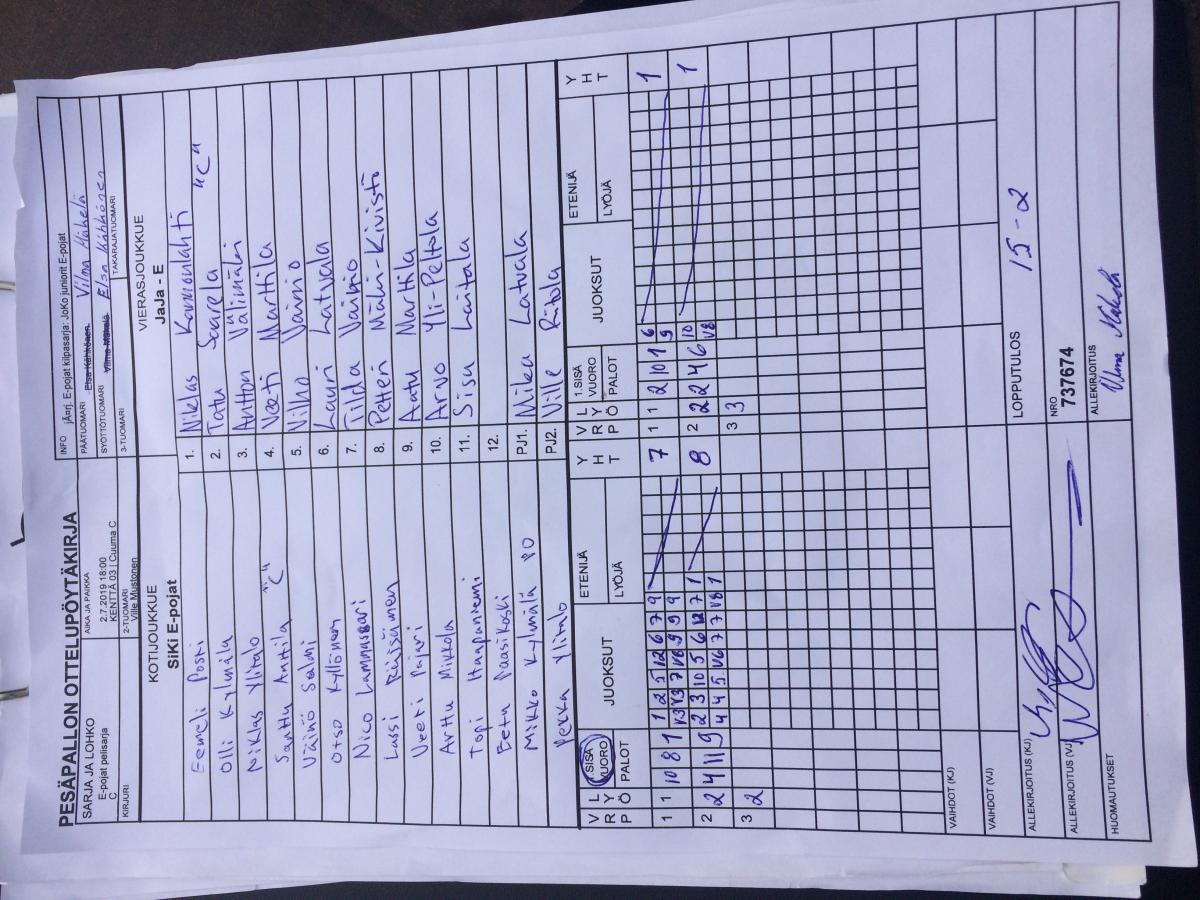 PESÄPALLON OTTELUPÖYTÄKIRJA
SARJA JA LOHKO
E-pojat pelisarja
C
AIKA JA PAIKKA
2.7.2019 18:00
KENTTÄ 03 | Cuuma C
INFO jÄrrj. E-pojat kilpasarja: JoKo juniorit E-pojat
PÄÄTUOMARI Elsa Kähkönen Vilma Mäkelä
SYÖTTÖTUOMARI Vilma Mäkelä Elsa Kähkönen
KIRJURI
2-TUOMARI
Ville Mustonen
3-TUOMARI
TAKARAJATUOMARI
KOTIJOUKKUE
SiKi E-pojat
VIERASJOUKKUE
JaJa - E
Eemeli Poski 1. Niklas Kammonlahti
Olli Kylmälä 2. Tatu Saarela "C"
Niklas Ylitalo 3. Anthon Välimäki
Santtu Anttila "C" 4. Veeti Marttila
Väinö Salmi 5. Vilho Vainio
Otso Kyllönen 6. Lauri Latvala
Nico Lammassaari 7. Tilda Vainio
Lassi Räisänen 8. Petteri Mäki-Kivistö
Veeti Pajari 9. Aatu Marttila
Arttu Mikkola 10. Arvo Yli-Peltola
Topi Haapaniemi 11. Sisu Laitala
Eetu Paasikoski 12.
Mikko Kylmälä PJ1. Mika Latvala
Pekka Ylitalo PJ2. Ville Ritola
V R P L Y Ö 1.SISÄ VUORO PALOT JUOKSUT ETENIJÄ LYÖJÄ Y H T V R P L Y Ö 1.SISÄ VUORO PALOT JUOKSUT ETENIJÄ LYÖJÄ Y H T
1 1 10 8 1 1 2 5 12 6 7 9 7 1 1 2 10 1 6 1
V3 V3 7 V6 9 9 9 9
2 2 4 11 9 2 3 10 5 6 12 7 1 8 2 2 2 4 6 10 1
4 4 5 V6 7 7 V8 1 V8
3 2 3 3
VAIHDOT (KJ)
VAIHDOT (VJ)
ALLEKIRJOITUS (KJ)
LOPPUTULOS 15-2
ALLEKIRJOITUS (VJ)
NRO
737674
HUOMAUTUKSET
ALLEKIRJOITUS
Vilma Mäkelä